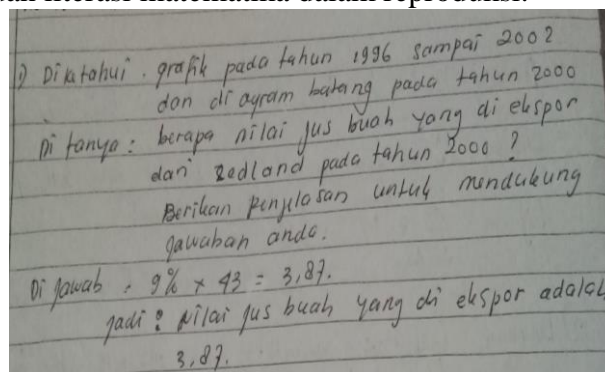 dan literasi matematika dalam reproduksi.
1) Diketahui . grafik pada tahun 1996 sampai 2002
dan diagram batang pada tahun 2000
Ditanya : berapa nilai jus buah yang di ekspor
dari zedland pada tahun 2000 ?
Berikan penjelasan untuk mendukung
jawaban anda.
Di jawab : 9% x 43 = 3,87.
jadi : Nilai jus buah yang di ekspor adalah
3,87.